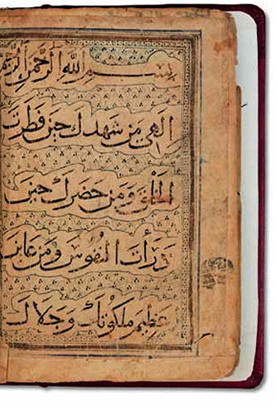 بسم الله الرحمن الرحيم
الهي من شهدك حين فطرت
الخلق ومن حضرك حين
ذرأت النفوس ومن عاين
عظيم ملكوتك وجلالك